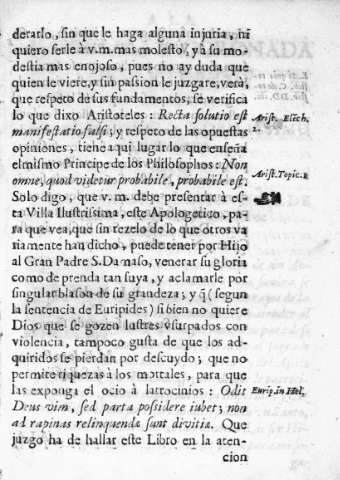 deratlo, sin que le haga alguna injuria, ni
quiero serle à v.m.mas molesto, y à su mo-
destia mas enojoso, pues no ay duda que
quien le viere, y sin passion le juzgare, verà,
que respeto de sus fundamentos, se verifica
lo que dixo Aristoteles: Recta solutio est
manifestatio falsi; y respeto de las opuestas
opiniones, tiene aqui lugar lo que enseña
el mismo Principe de los Philosophos: Non
omne, quod videtur probabile, probabile est.
Solo digo, que v. m. debe presentar à es-
ta Villa Ilustrissima, este Apologetico, pa-
ra que vea, que sin rezelo de lo que otros va
riamente han dicho, puede tener por Hijo
al Gran Padre S. Damaso, venerar su gloria
como de prenda tan suya, y aclamarle por
singular blason de su grandeza; y q̃ (segun
la sentencia de Euripides) si bien no quiere
Dios que se gozen lustres vsurpados con
violencia, tampoco gusta de que los ad-
quiridos se pierdan por descuydo; que no
permite riquezas à los mortales, para que
las exponga el ocio à latrocinios: Odit
Deus vim, sed parta possidere iubet; non
ad rapinas relinquenda sunt divitia. Que
juzgo ha de hallar este Libro en la aten-
cion
Arist. Elech.
2.
Arist. Topic. 2
Eurip. in Hel.